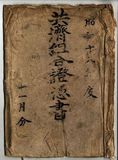 昭和十八年度
共濟組合證憑書
十一月分